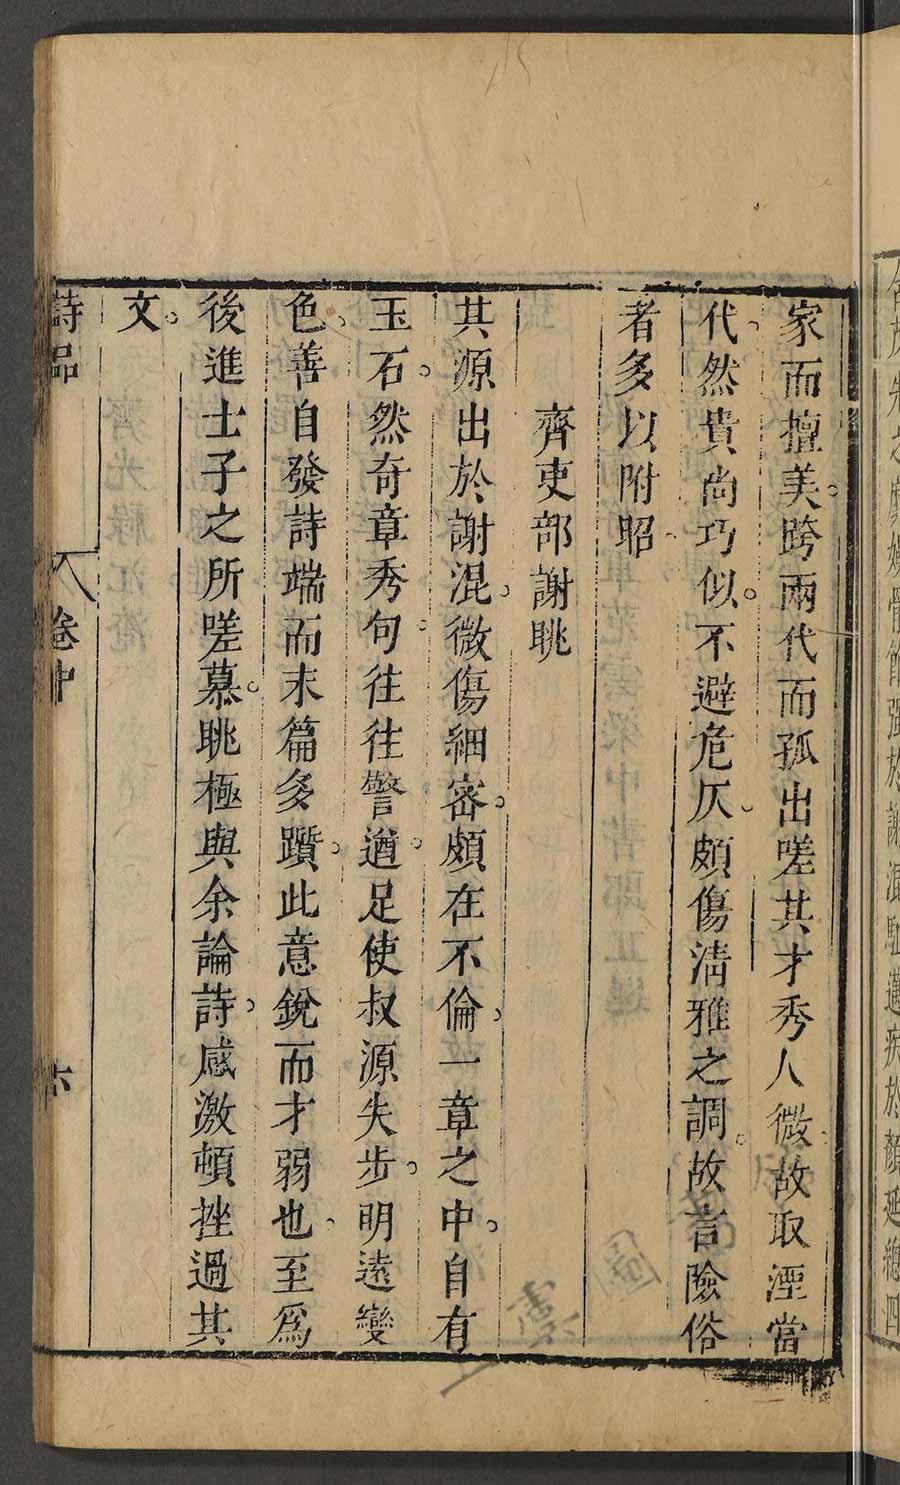 家而擅美跨兩代而孤出嗟其才秀人微故取湮當
代然貴尚巧似不避危仄頗傷淸雅之調故言險俗
者多以附昭
齊吏部謝眺
其源出於謝混微傷細密頗在不倫一章之中自有
玉石然奇章秀句往往警遒足使叔源失步明遠變
色善自發詩端而末篇多躓此意銳而才弱也至爲
後進士子之所嗟慕眺極與余論詩感激頓挫過其
文
詩品
卷中
六